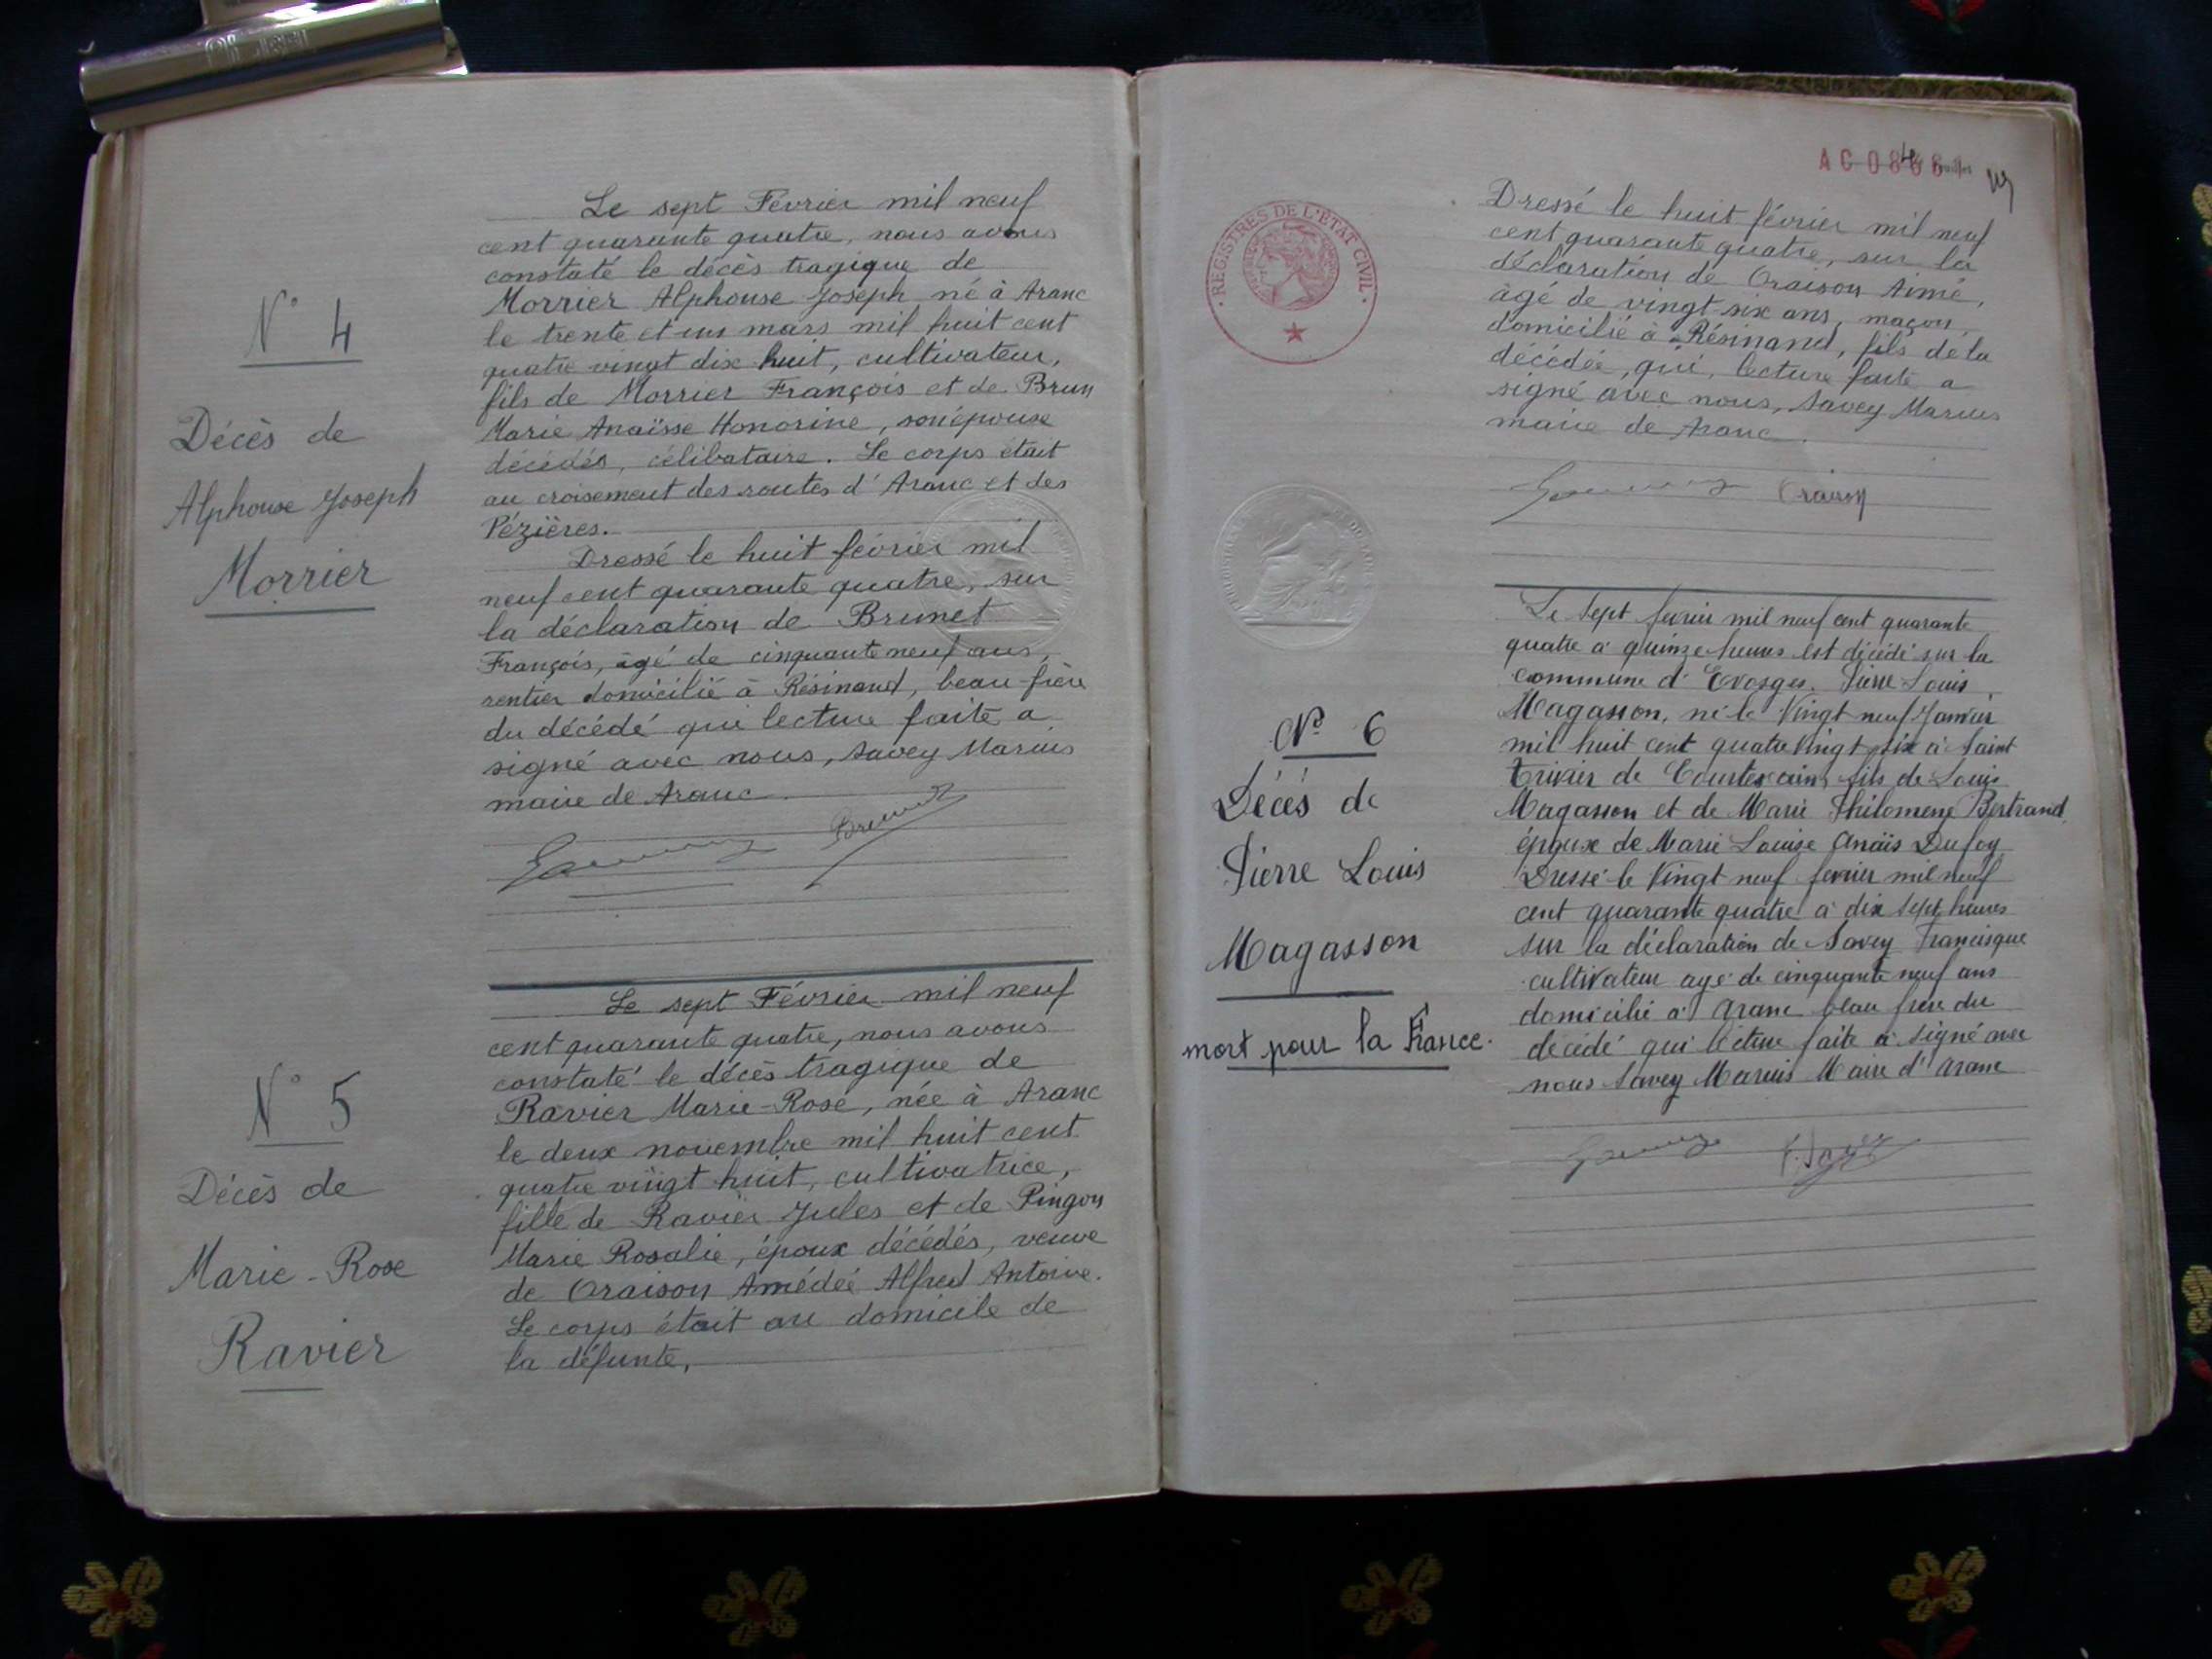 N° 4
Décès de
Alphonse Joseph
Morrier
Le sept Février mil neuf
cent quarante quatre, nous avons
constaté le décès tragique de
Morrier Alphonse Joseph né à Aranc
le trente et un mars mil huit cent
quatre vingt dix huit, cultivateur,
fils de Morrier François et de Brun
Marie Anaïsse Honorine, son épouse
décédés, célibataire. Le corps était
au croisement des routes d'Aranc et des
Pézières.
Dressé le huit février mil
neuf cent quarante quatre, sur
la déclaration de Brunet
François, âgé de cinquante neuf ans,
rentier domicilié à Résinand, beau-frère
du décédé qui lecture faite a
signé avec nous, Savey Marius
maire de Aranc.
Brunet
N° 5
Décès de
Marie-Rose
Ravier
Le sept Février mil neuf
cent quarante quatre, nous avons
constaté le décès tragique de
Ravier Marie-Rose, née à Aranc
le deux novembre mil huit cent
quatre vingt huit, cultivatrice,
fille de Ravier Jules et de Pingon
Marie Rosalie, époux décédés, veuve
de Oraison Amédée Alfred Antoine.
Le corps était au domicile de
la défunte,
REGISTRES DE L'ÉTAT CIVIL
Dressé le huit février mil neuf
cent quarante quatre, sur la
déclaration de Oraison Aimé,
âgé de vingt-six ans, maçon,
domicilié à Résinand, fils de la
décédée, qui, lecture faite a
signé avec nous, Savey Marius
maire de Aranc.
Oraison
N° 6
Décés de
Pierre Louis
Magasson
mort pour la France.
Le Sept fevrier mil neuf cent quarante
quatre à quinze heures est décédé sur la
commune d'Evosges. Pierre Louis
Magasson, né le Vingt neuf Janvier
mil huit cent quatre Vingt dix à Saint
Trivier de Courtes ain, fils de Louis
Magasson et de Marie Philomene Bertrand,
époux de Marie Louise Anaïs Dufog
Dressé le Vingt neuf fevrier mil neuf
cent quarante quatre à dix sept heures
sur la déclaration de Savey Francisque
cultivateur agé de cinquante neuf ans
domicilié à Aranc beau frere du
decédé qui lecture faite à signé avec
nous Savey Marius Maire d'Aranc